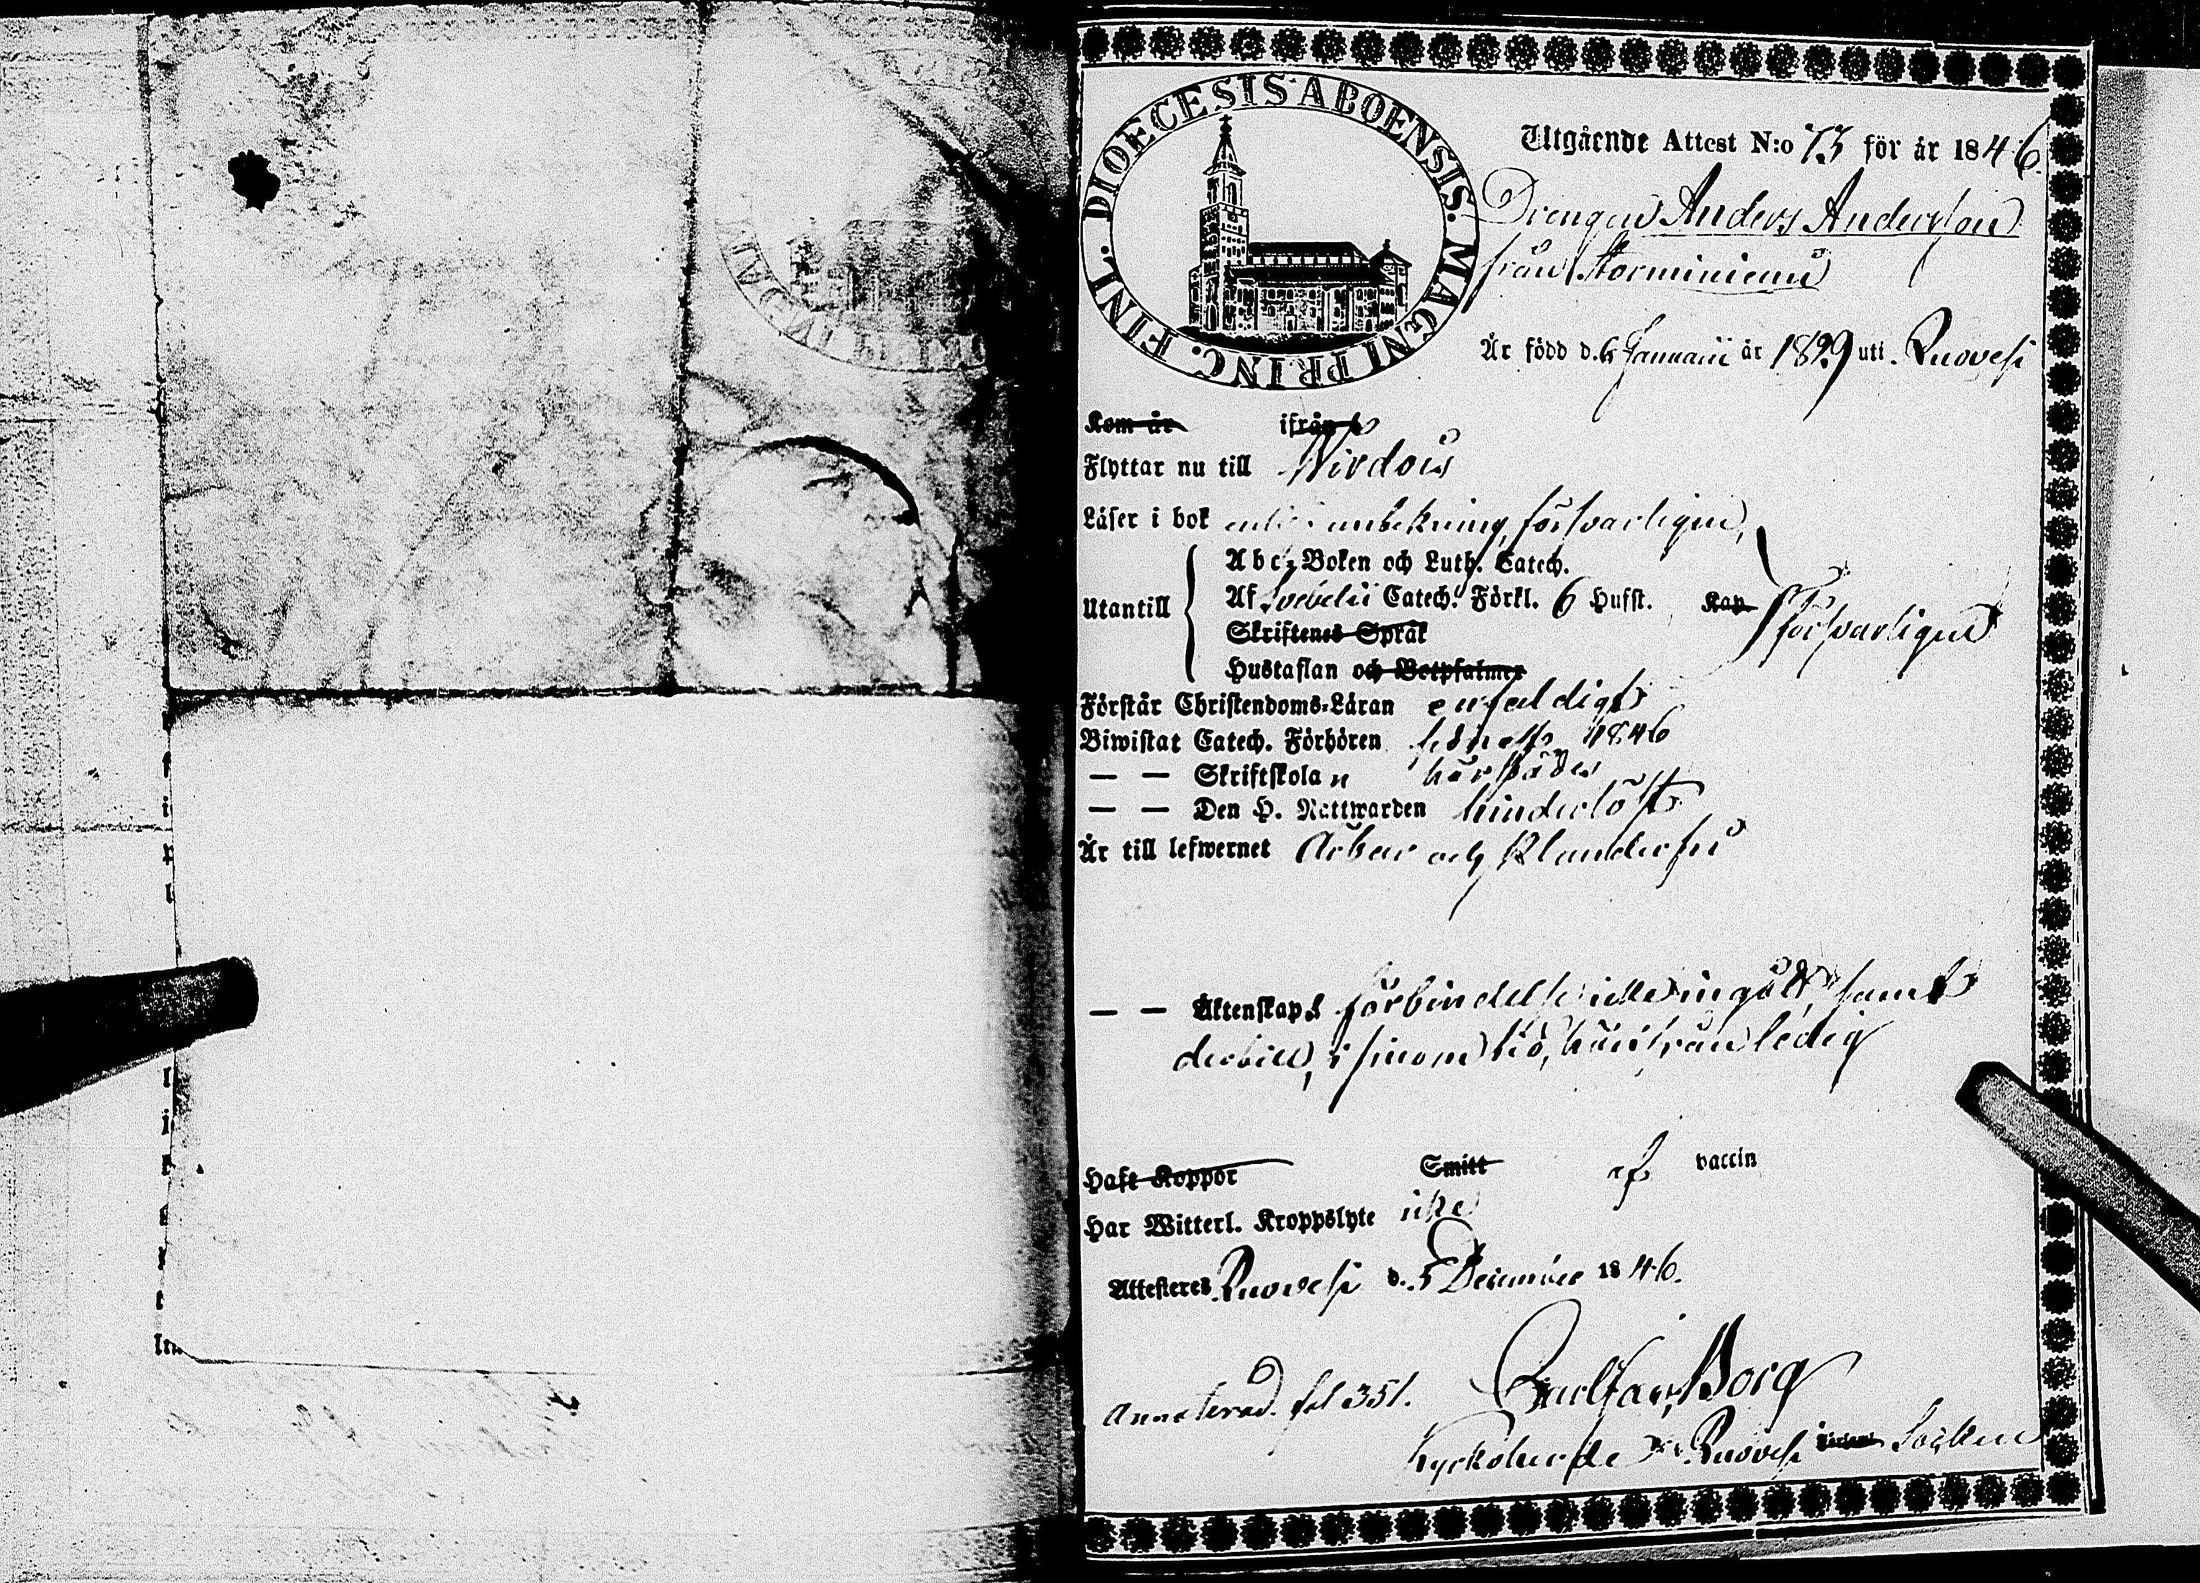 DIOECESIS ABOENSIS. MAGNI PRINC. FINL.
Utgående Attest N:o 73 för år 1846.
Drengen Anders Andersson
från Storminiemi
Är född d. 6 Januarii år 1829 uti Ruovesi
Kom år ifrån
Flyttar nu till Wirdois
Läser i bok enl. anteckning, försvarligen,
Abc-Boken och Luth. Catech.
Utantill Af Svebelii Catech. Förkl. 6 Hufst. Kap. försvarligen
Skriftenes Språk
Hustaflan och Botpsalmer
Förstår Christendoms-Läran enfaldigt
Biwistat Catech. Förhören senast 1846
— — Skriftskolan härstädes
— — Den H. Nattwarden hinderlöst
Är till lefwernet Ärbar och klanderfri
— — Äktenskaps förbindelse icke ingått, samt
dertill, i sinom tid, härifrån ledig
Haft Koppor Smitt af vaccin
Har Witterl. Kroppslyte icke
Attesteras Ruovesi d. 5 December 1846.
Annoterad. fol 351. Gustav Borg
Kyrkoherde i Ruovesi Socken